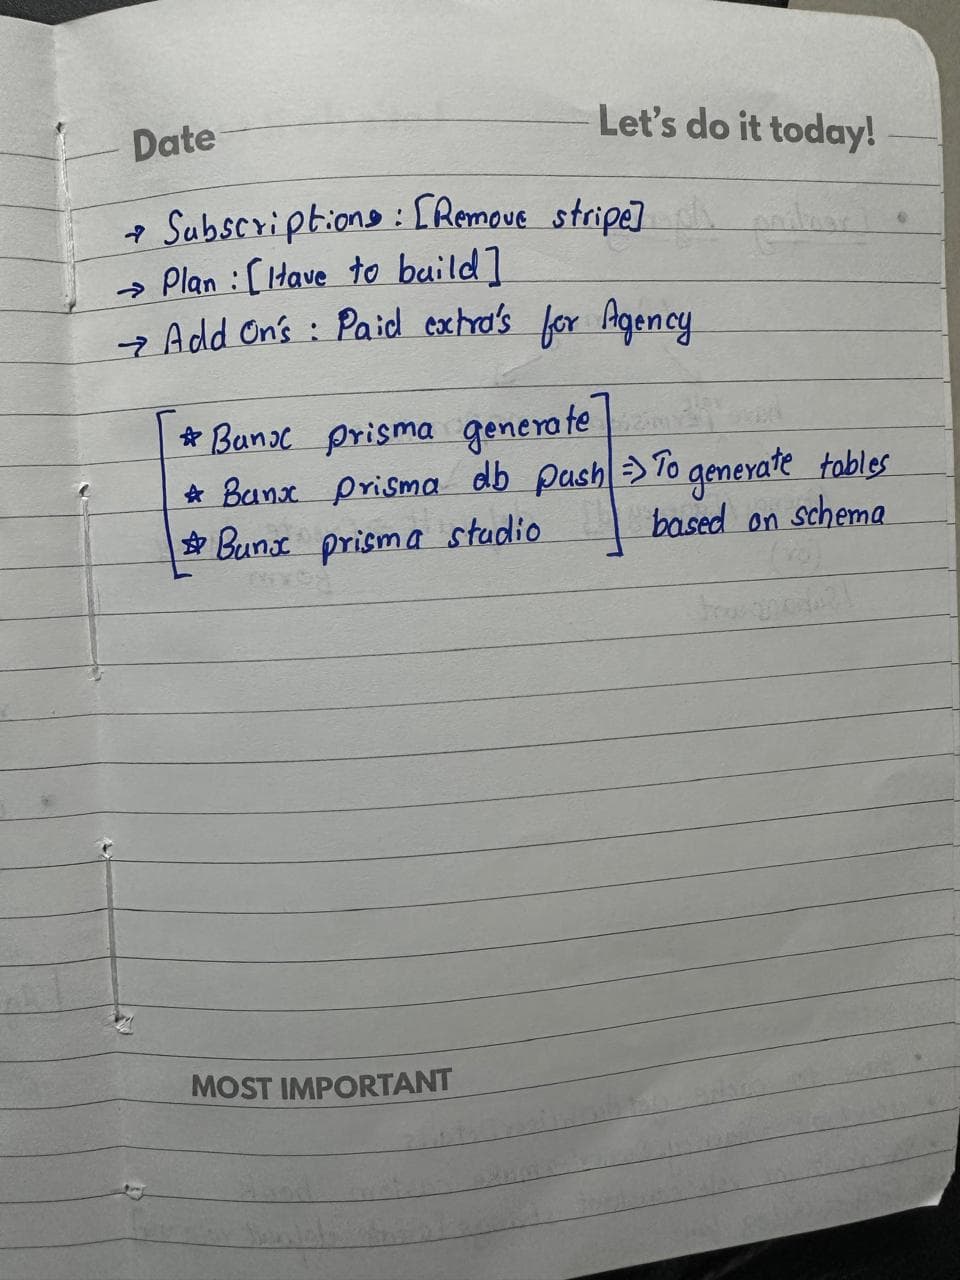 Date
Let's do it today!
→ Subscriptions : [Remove stripe]
→ Plan : [Have to build]
→ Add On's : Paid extra's for Agency
☆ Bunx prisma generate
☆ Bunx prisma db push ⇒ To generate tables
☆ Bunx prisma studio based on schema
MOST IMPORTANT